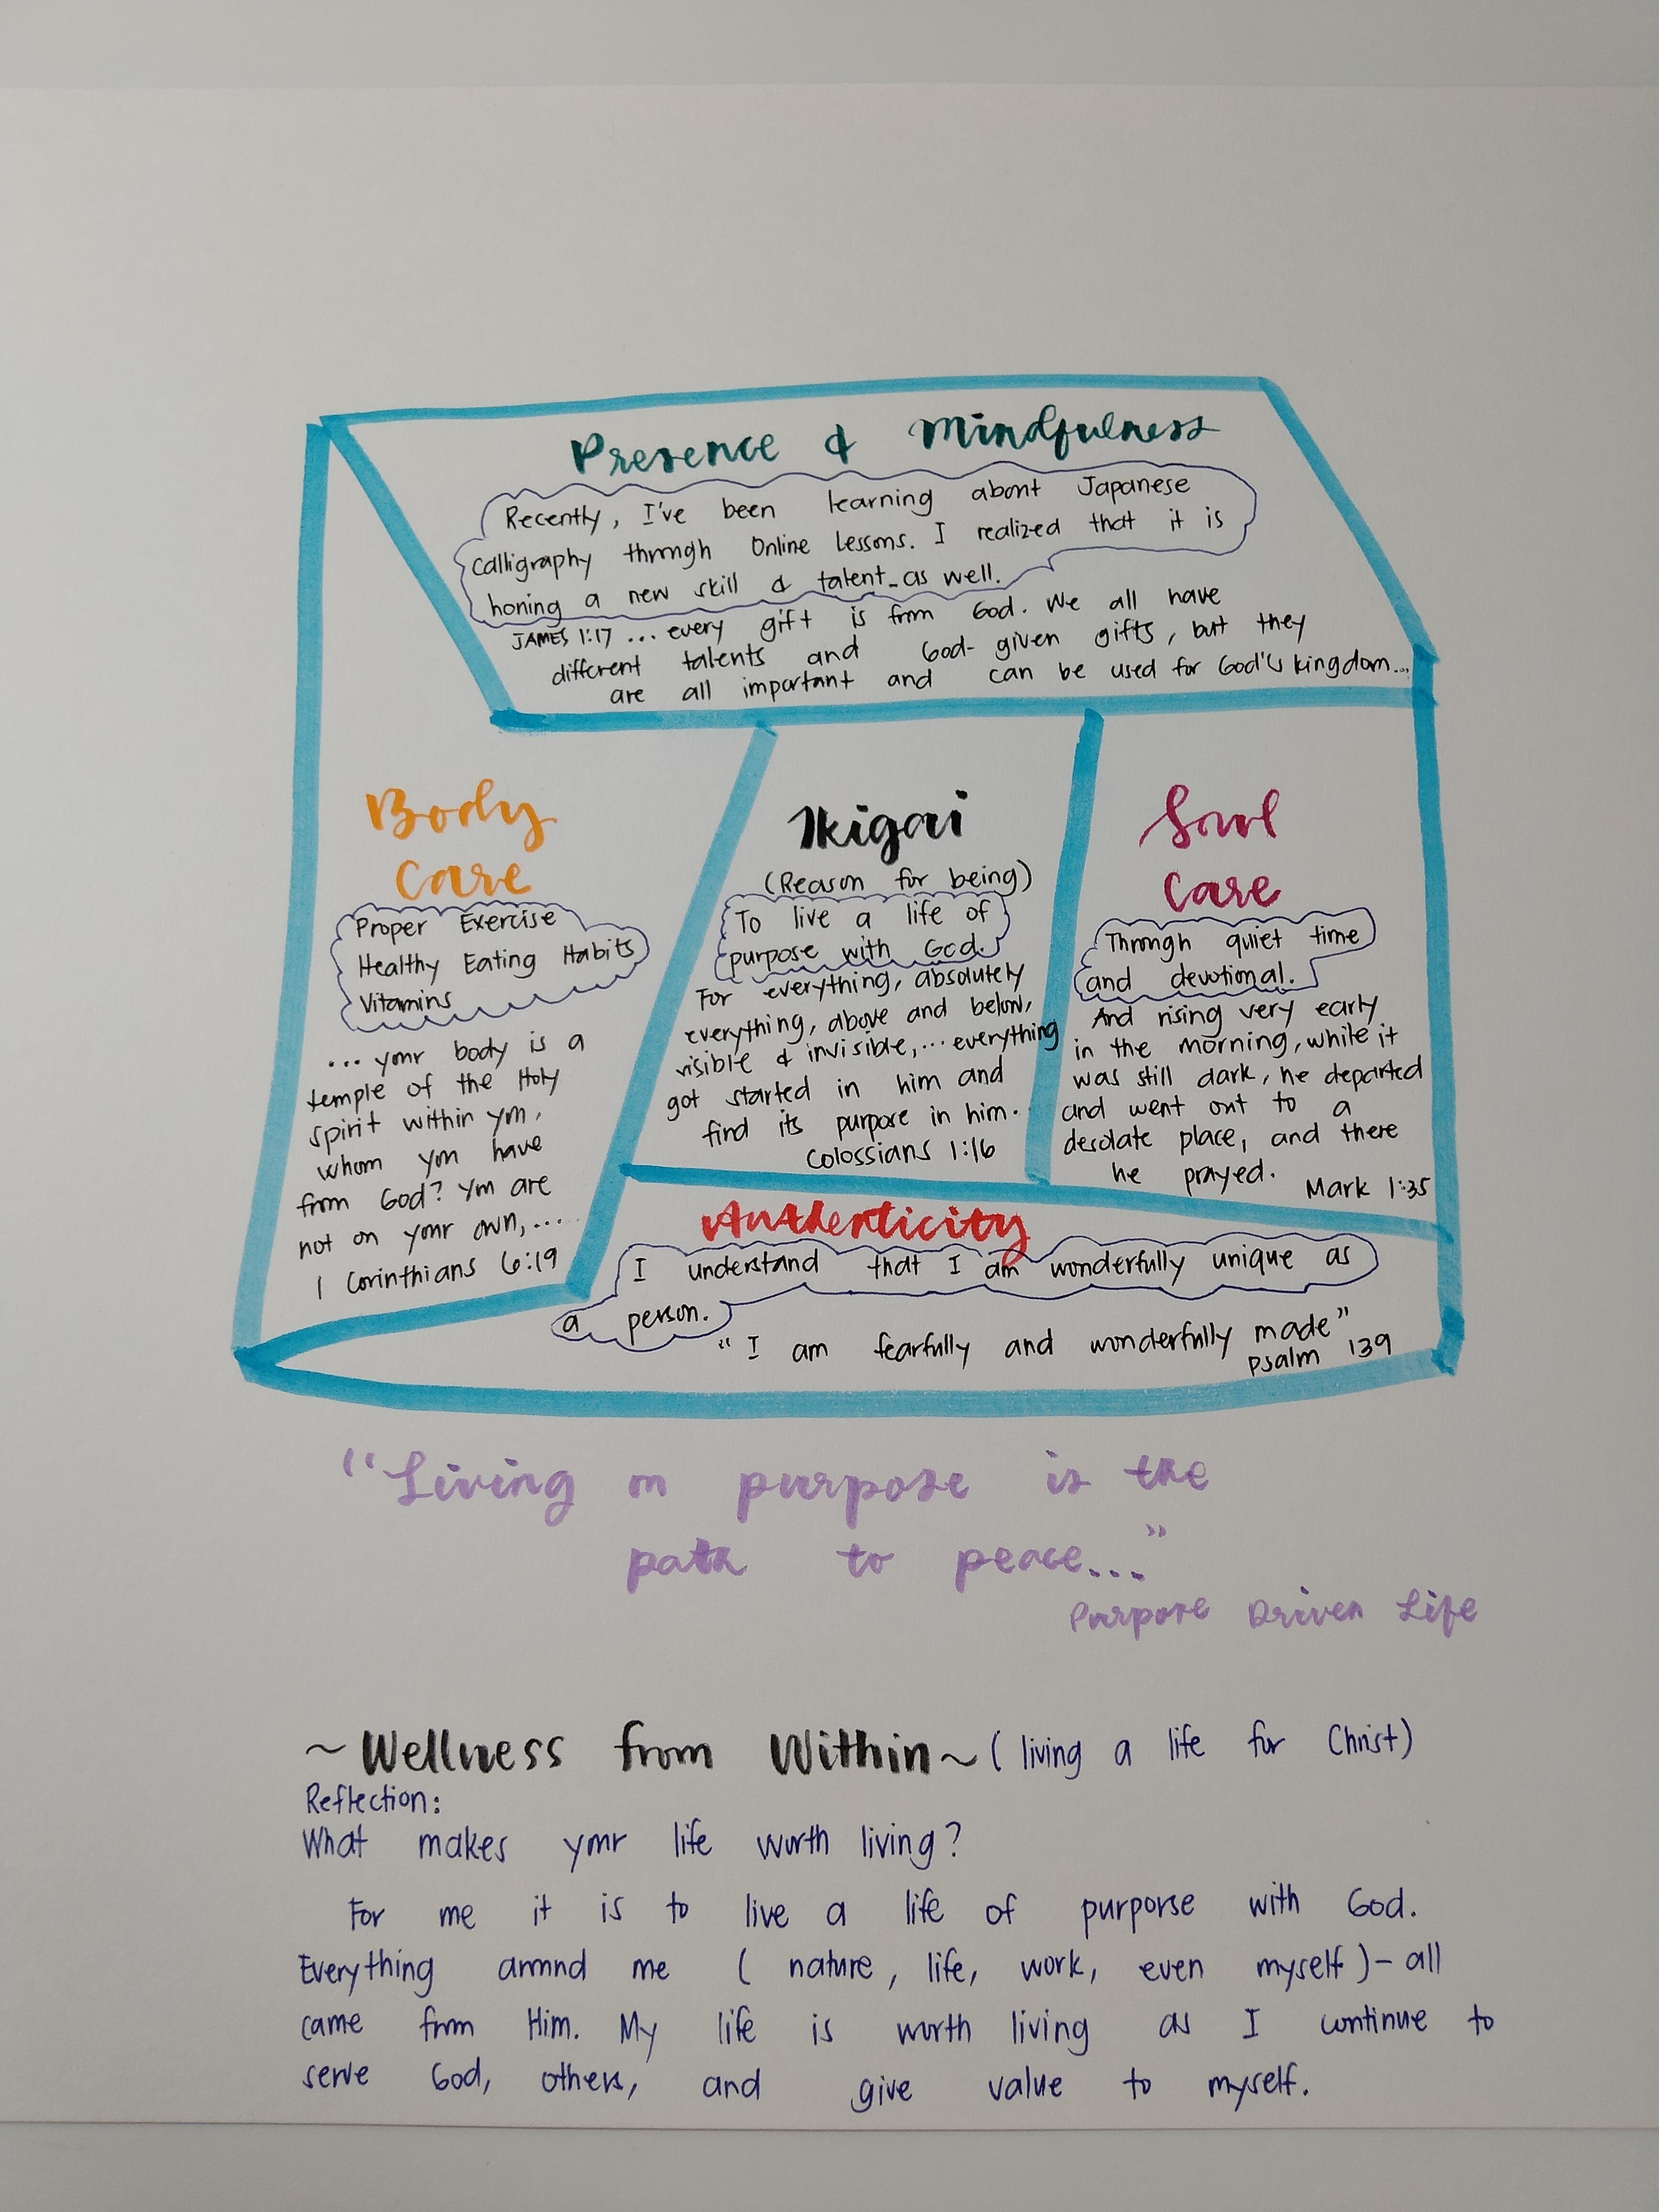 Presence & Mindfulness
Recently, I've been learning about Japanese
calligraphy through Online Lessons. I realized that it is
honing a new skill & talent as well.
JAMES 1:17 ... every gift is from God. We all have
different talents and God-given gifts, but they
are all important and can be used for God's kingdom...
Body
Care
Proper Exercise
Healthy Eating Habits
Vitamins
... your body is a
temple of the Holy
spirit within you,
whom you have
from God? You are
not on your own,....
1 Corinthians 6:19
Ikigai
(Reason for being)
To live a life of
purpose with God.
For everything, absolutely
everything, above and below,
visible & invisible,... everything
got started in him and
find its purpose in him.
Colossians 1:16
Soul
Care
Through quiet time
and devotional.
And rising very early
in the morning, while it
was still dark, he departed
and went out to a
desolate place, and there
he prayed.
Mark 1:35
Authenticity
I understand that I am wonderfully unique as
a person.
"I am fearfully and wonderfully made"
Psalm 139
"Living on purpose is the
path to peace..."
Purpose Driven Life
~Wellness from Within~ (living a life for Christ)
Reflection:
What makes your life worth living?
For me it is to live a life of purporse with God.
Everything around me (nature, life, work, even myself)- all
came from Him. My life is worth living as I continue to
serve God, others, and give value to myself.